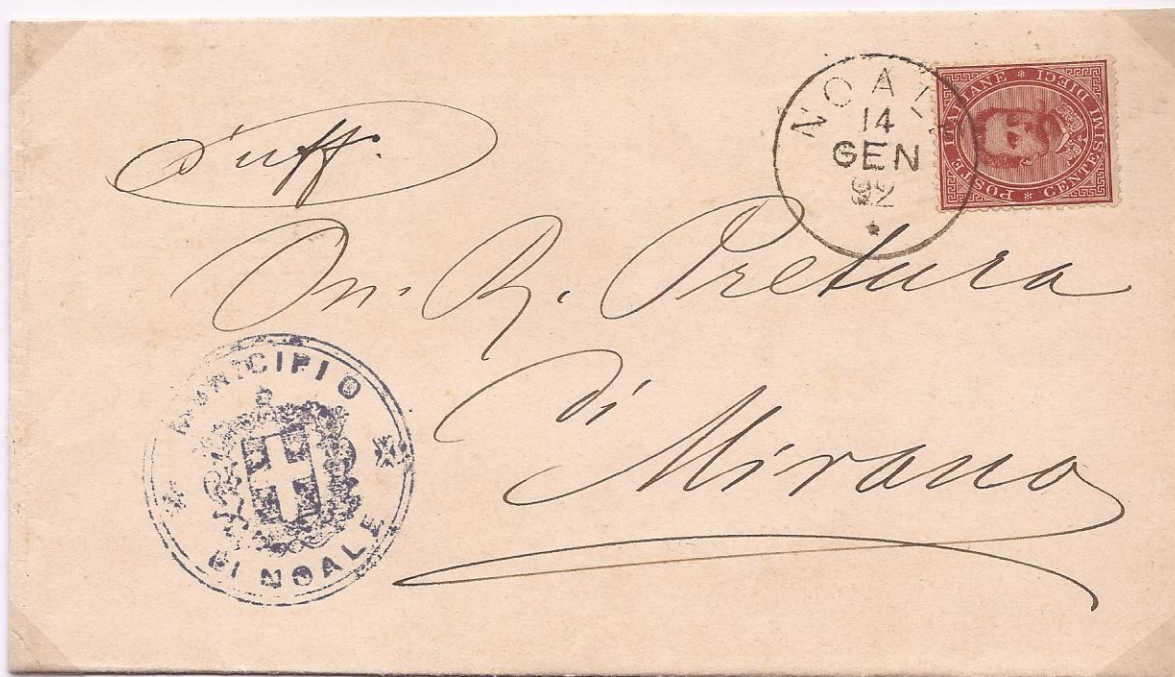 d'uff.
NOALE
14
GEN
92
POSTE ITALIANE * CENTESIMI DIECI *
On. R. Pretura
di
Mirano
MUNICIPIO
DI NOALE